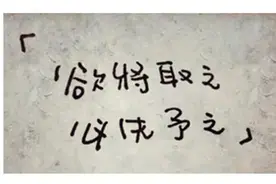 「欲将取之
必先予之」